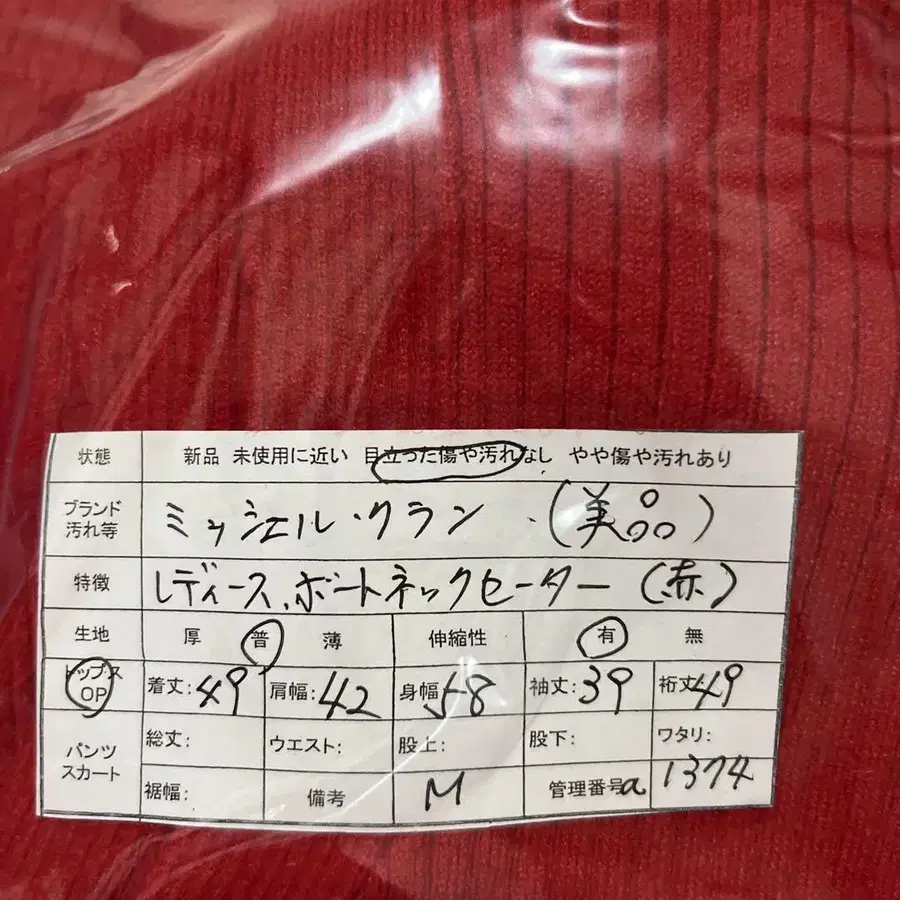 状態 新品 未使用に近い 目立った傷や汚れなし やや傷や汚れあり
ブランド 汚れ等 ミッシェル・クラン (美品)
特徴 レディース、ボートネックセーター (赤)
生地 厚 普 薄 伸縮性 有 無
トップス OP 着丈:49 肩幅:42 身幅58 袖丈:39 裄丈49
パンツ スカート 総丈: ウエスト: 股上: 股下: ワタリ:
裾幅: 備考 M 管理番号a 1374